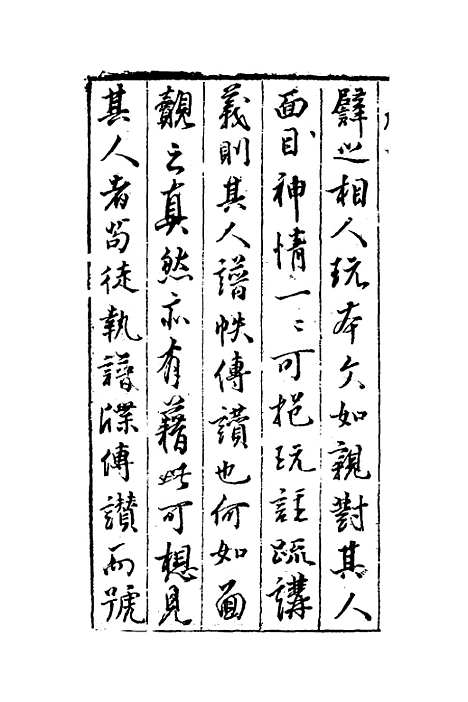 譬之相人玩本文如親對其人
面目神情一一可挹玩註疏講
義則其人譜帙傳讚也何如面
覿之真然亦有藉此可想見
其人者苟徒執譜牒傳讚而號